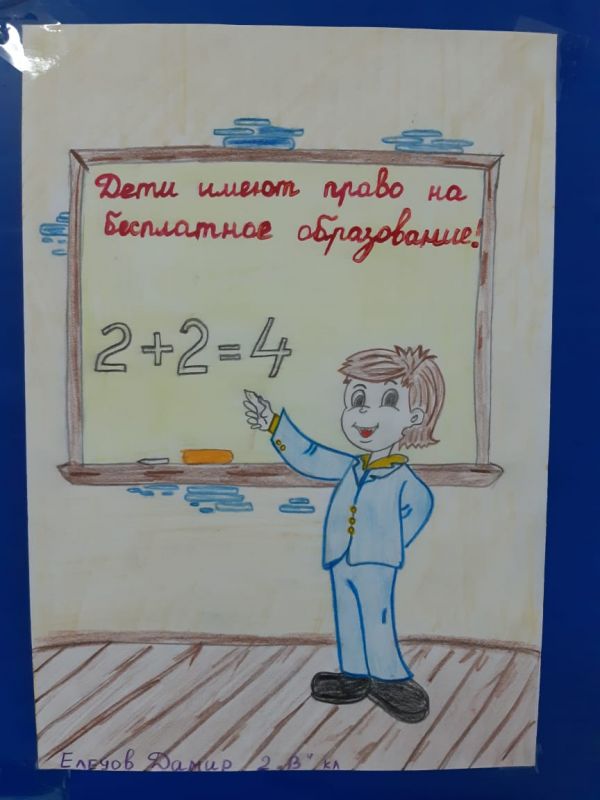 Дети имеют право на
бесплатное образование!
2+2=4
Дамир 2 "В" кл